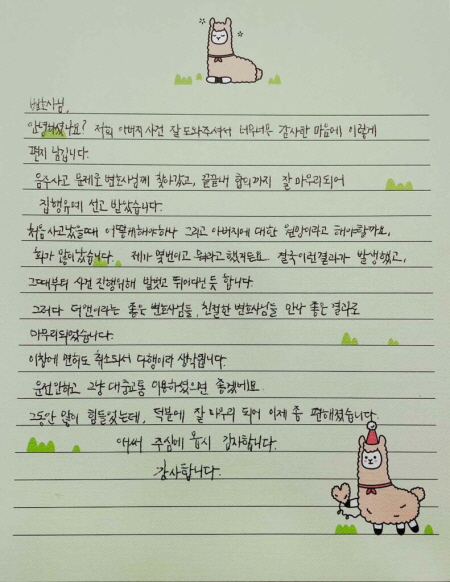 변호사님,
안녕하셨나요? 저희 아버지 사건 잘 도와주셔서 너무너무 감사한 마음에 이렇게
편지 남깁니다.
음주사고 문제로 변호사님께 찾아갔고, 끝끝내 합의까지 잘 마무리되어
집행유예 선고 받았습니다.
처음 사고났을때 어떻게해야하나 그리고 아버지에 대한 원망이라고 해야할까요,
화가 많이났습니다. 제가 몇번이고 뭐라고 했거든요. 결국이런결과가 발생했고,
그때부터 사건 진행위해 발벗고 뛰어다닌 듯 합니다.
그러다 더앤이라는 좋은 변호사님들, 친절한 변호사님들 만나 좋은 결과로
마무리되었습니다.
이참에 면허도 취소와서 다행이라 생각됩니다.
운전안하고 그냥 대중교통 이용하셨으면 좋겠어요.
그동안 많이 힘들었는데, 덕분에 잘 마무리 되어 이제 좀 편해졌습니다.
애써 주심에 몹시 감사합니다.
감사합니다.